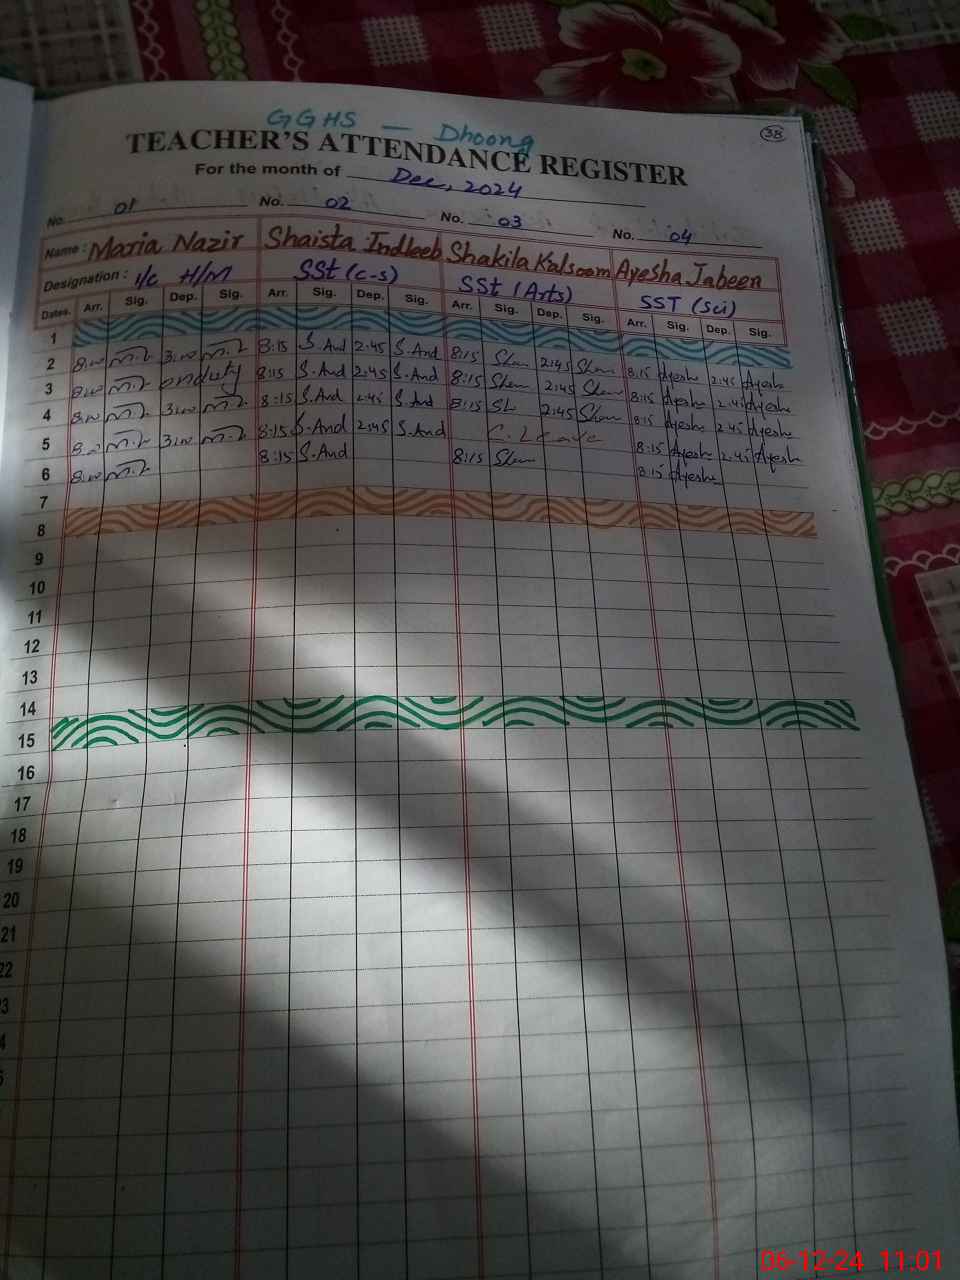 GGHS — Dhoong
38
TEACHER'S ATTENDANCE REGISTER
For the month of Dec, 2024
No. 01 No. 02 No. 03 No. 04
Name: Maria Nazir Shaista Indleeb Shakila Kalsoom Ayesha Jabeen
Designation: I/c H/M SSt (C-S) SSt (Arts) SST (Sci)
Dates. Arr. Sig. Dep. Sig. Arr. Sig. Dep. Sig. Arr. Sig. Dep. Sig. Arr. Sig. Dep. Sig.
1
2 8:00 3:00 8:15 S.And 2:45 S.And 8:15 2:45 8:15 Ayesha 2:45 Ayesha
3 8:00 onduty 8:15 S.And 2:45 S.And 8:15 2:45 8:15 Ayesha 2:45 Ayesha
4 8:00 3:00 8:15 S.And 2:45 S.And 8:15 2:45 8:15 Ayesha 2:45 Ayesha
5 8:00 3:00 8:15 S.And 2:45 S.And C.Leave 8:15 Ayesha 2:45 Ayesha
6 8:00 8:15 S.And 8:15 8:15 Ayesha
7
8
9
10
11
12
13
14
15
16
17
18
19
20
21
22
3
4
06-12-24 11:01